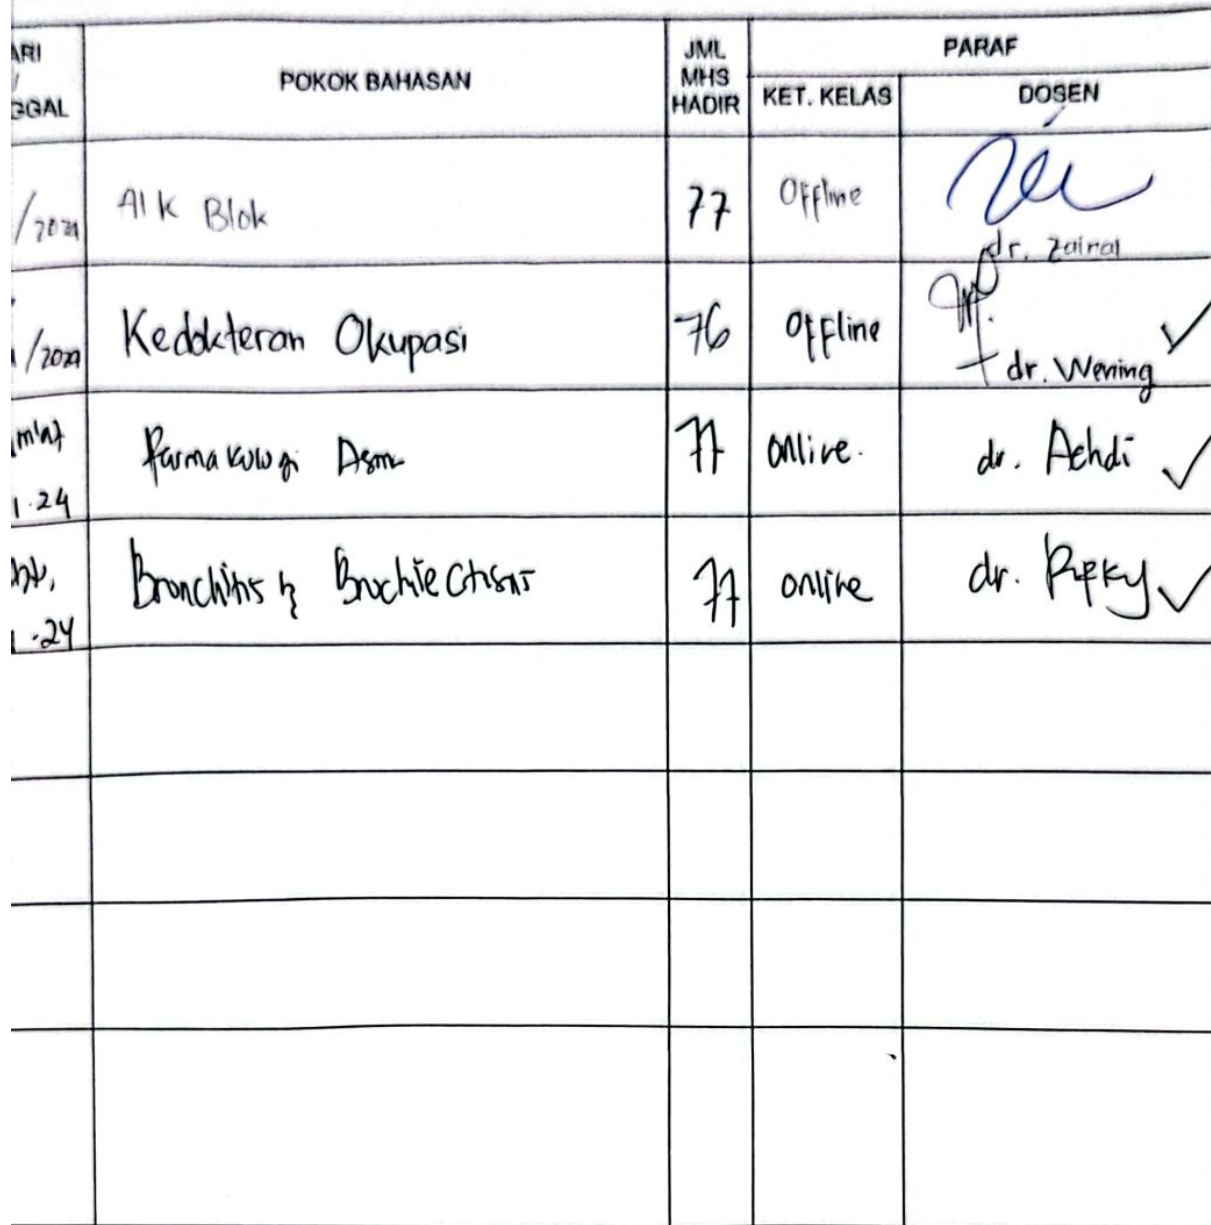 ARI
/
GGAL
POKOK BAHASAN
JML
MHS
HADIR
PARAF
KET. KELAS
DOSEN
AIK Blok
77
Offline
dr. Zairal
Kedokteran Okupasi
76
Offline
dr. Wening
m'at
1.24
Farmakologi Asma
77
online.
dr. Achdi
-24
Bronchitis
77
online
dr. Rifky